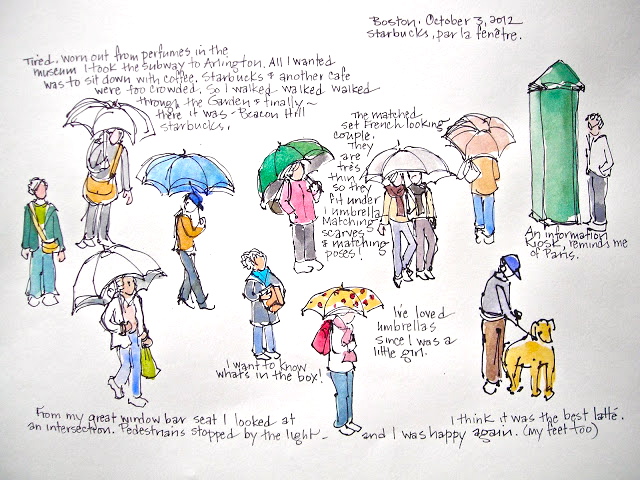 Boston, October 3, 2012
Starbucks, par la fenêtre.
Tired, worn out from perfumes in the
museum I took the subway to Arlington. All I wanted
was to sit down with coffee. Starbucks & another cafe
were too crowded. So I walked walked walked
through the Garden & finally ~
there it was - Beacon Hill
Starbucks.
The matched
set French looking
couple.
They
are
très
thin
so they
fit under
1 umbrella
Matching
scarves
& matching
poses!
An information
Kiosk, reminds me
of Paris.
I've loved
umbrellas
since I was a
little girl.
I want to know
what's in the box!
From my great window bar seat I looked at
an intersection. Pedestrians stopped by the light -
and I was happy again. (my feet too)
I think it was the best latté.